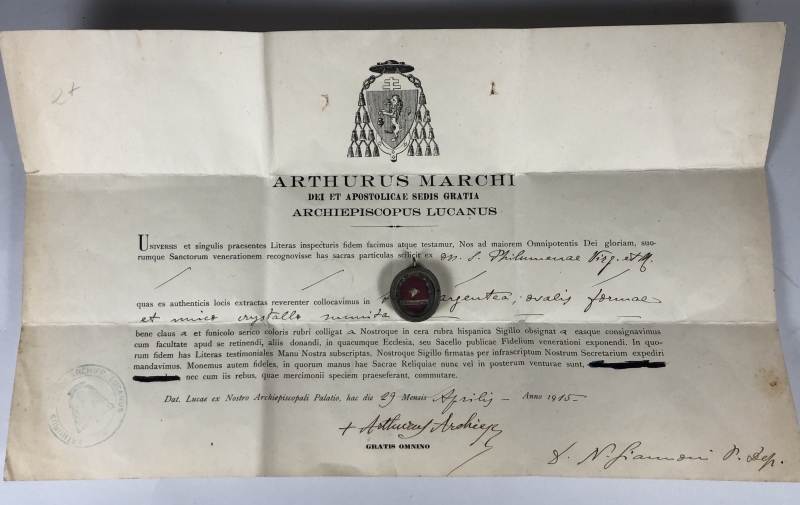 2+
ARTHURUS MARCHI
DEI ET APOSTOLICAE SEDIS GRATIA
ARCHIEPISCOPUS LUCANUS
UNIVERSIS et singulis praesentes Literas inspecturis fidem facimus atque testamur, Nos ad maiorem Omnipotentis Dei gloriam, suo-
rumque Sanctorum venerationem recognovisse has sacras particulas scilicet ex oss. S. Philumenae Virg. et M.
quas ex authenticis locis extractas reverenter collocavimus in argentea, ovalis formae
et unico crystallo munita
bene claus a et funicolo serico coloris rubri colligat a Nostroque in cera rubra hispanica Sigillo obsignat a easque consignavimus
cum facultate apud se retinendi, aliis donandi, in quacumque Ecclesia, seu Sacello publicae Fidelium venerationi exponendi. In quo-
rum fidem has Literas testimoniales Manu Nostra subscriptas, Nostroque Sigillo firmatas per infrascriptum Nostrum Secretarium expediri
mandavimus. Monemus autem fideles, in quorum manus hae Sacrae Reliquiae nunc vel in posterum venturae sunt,
nec cum iis rebus, quae mercimonii speciem praeseferant, commutare.
Dat. Lucae ex Nostro Archiepiscopali Palatio, hac die 29 Mensis Aprilis Anno 1915
+ Arthurus Archiep.
GRATIS OMNINO
N. Giannoni P. Dep.